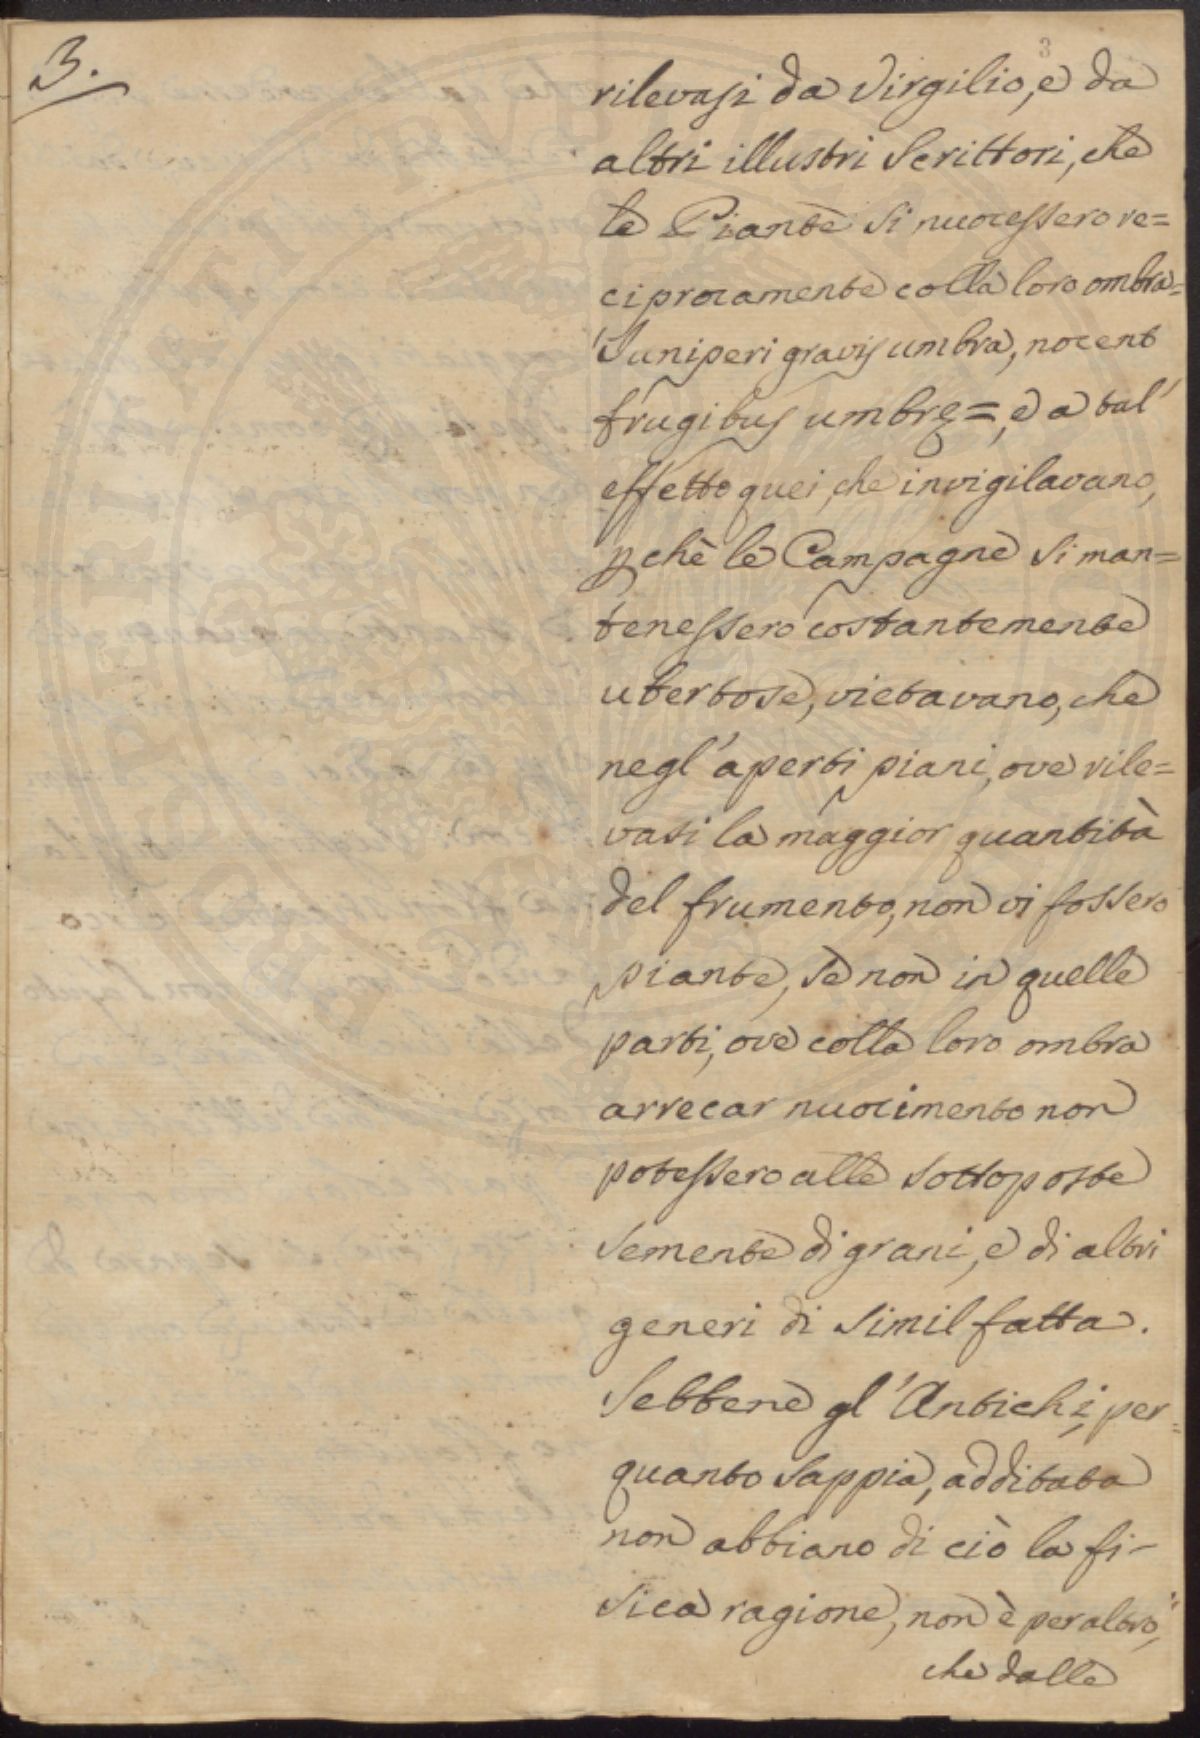 3.
3
rilevasi da Virgilio, e da
altri illustri Scrittori, che
le Piante si nuocessero re=
ciprocamente colla loro ombra=
Juniperi gravis umbra, nocent
frugibus umbrę=, e a tal'
effetto quei, che invigilavano,
pchè le Campagne si man=
tenessero costantemente
ubertose, vietavano, che
negl'aperti piani, ove rile=
vasi la maggior quantità
del frumento, non vi fossero
piante, se non in quelle
parti, ove colla loro ombra
arrecar nuocimento non
potessero alle sottoposte
semente di grani, e di altri
generi di simil fatta.
Sebbene gl'Antichi, per
quanto sappia, additata
non abbiano di ciò la fi-
sica ragione, non è peraltro,
che dalle